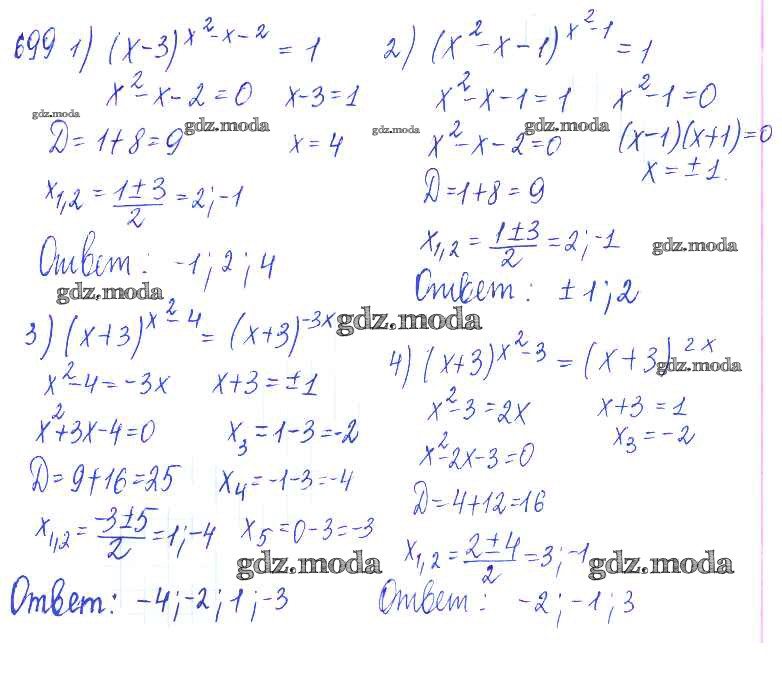 699 1) (x-3)^{x²-x-2} = 1
x²-x-2=0 x-3=1
gdz.moda
Д=1+8=9 gdz.moda x=4
x₁,₂ = \frac{1±3}{2} = 2; -1
Ответ: -1; 2; 4
gdz.moda
2) (x²-x-1)^{x²-1} = 1
x²-x-1=1 x²-1=0
gdz.moda gdz.moda
x²-x-2=0 (x-1)(x+1)=0
Д=1+8=9 x=±1.
x₁,₂ = \frac{1±3}{2} = 2; -1 gdz.moda
Ответ: ±1; 2
3) (x+3)^{x²-4} = (x+3)^{-3x} gdz.moda
x²-4=-3x x+3=±1
x²+3x-4=0 x₃=1-3=-2
Д=9+16=25 x₄=-1-3=-4
x₁,₂ = \frac{-3±5}{2} = 1; -4 x₅=0-3=-3
gdz.moda
Ответ: -4; -2; 1; -3
4) (x+3)^{x²-3} = (x+3)^{2x}
gdz.moda
x²-3=2x x+3=1
x²-2x-3=0 x₃=-2
Д=4+12=16
x₁,₂ = \frac{2±4}{2} = 3; -1 gdz.moda
Ответ: -2; -1; 3